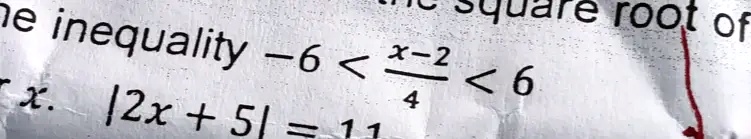 square root of
inequality −6 < \frac{x−2}{4} < 6
x. |2x + 5| = 11